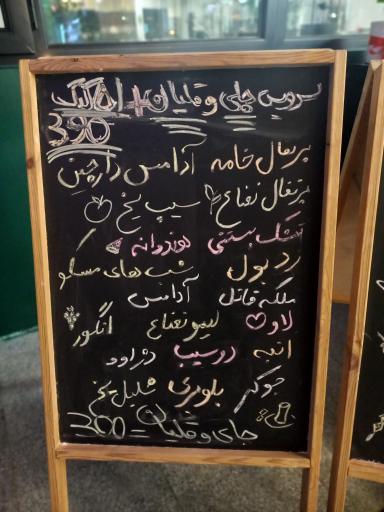 سرویس چای و قلیان + ان کیک
390
پرتقال خامه آدامس دارچین
پرتقال نعناع سیب یخ
تمشک بستنی هندوانه
رد بول شب های مسکو
ملکه قاتل آدامس
لاو لیمو نعناع انگور
انبه دوسیب دژاوو
جوکر بلوبری شلیل یخ
چای و قلیان = 360